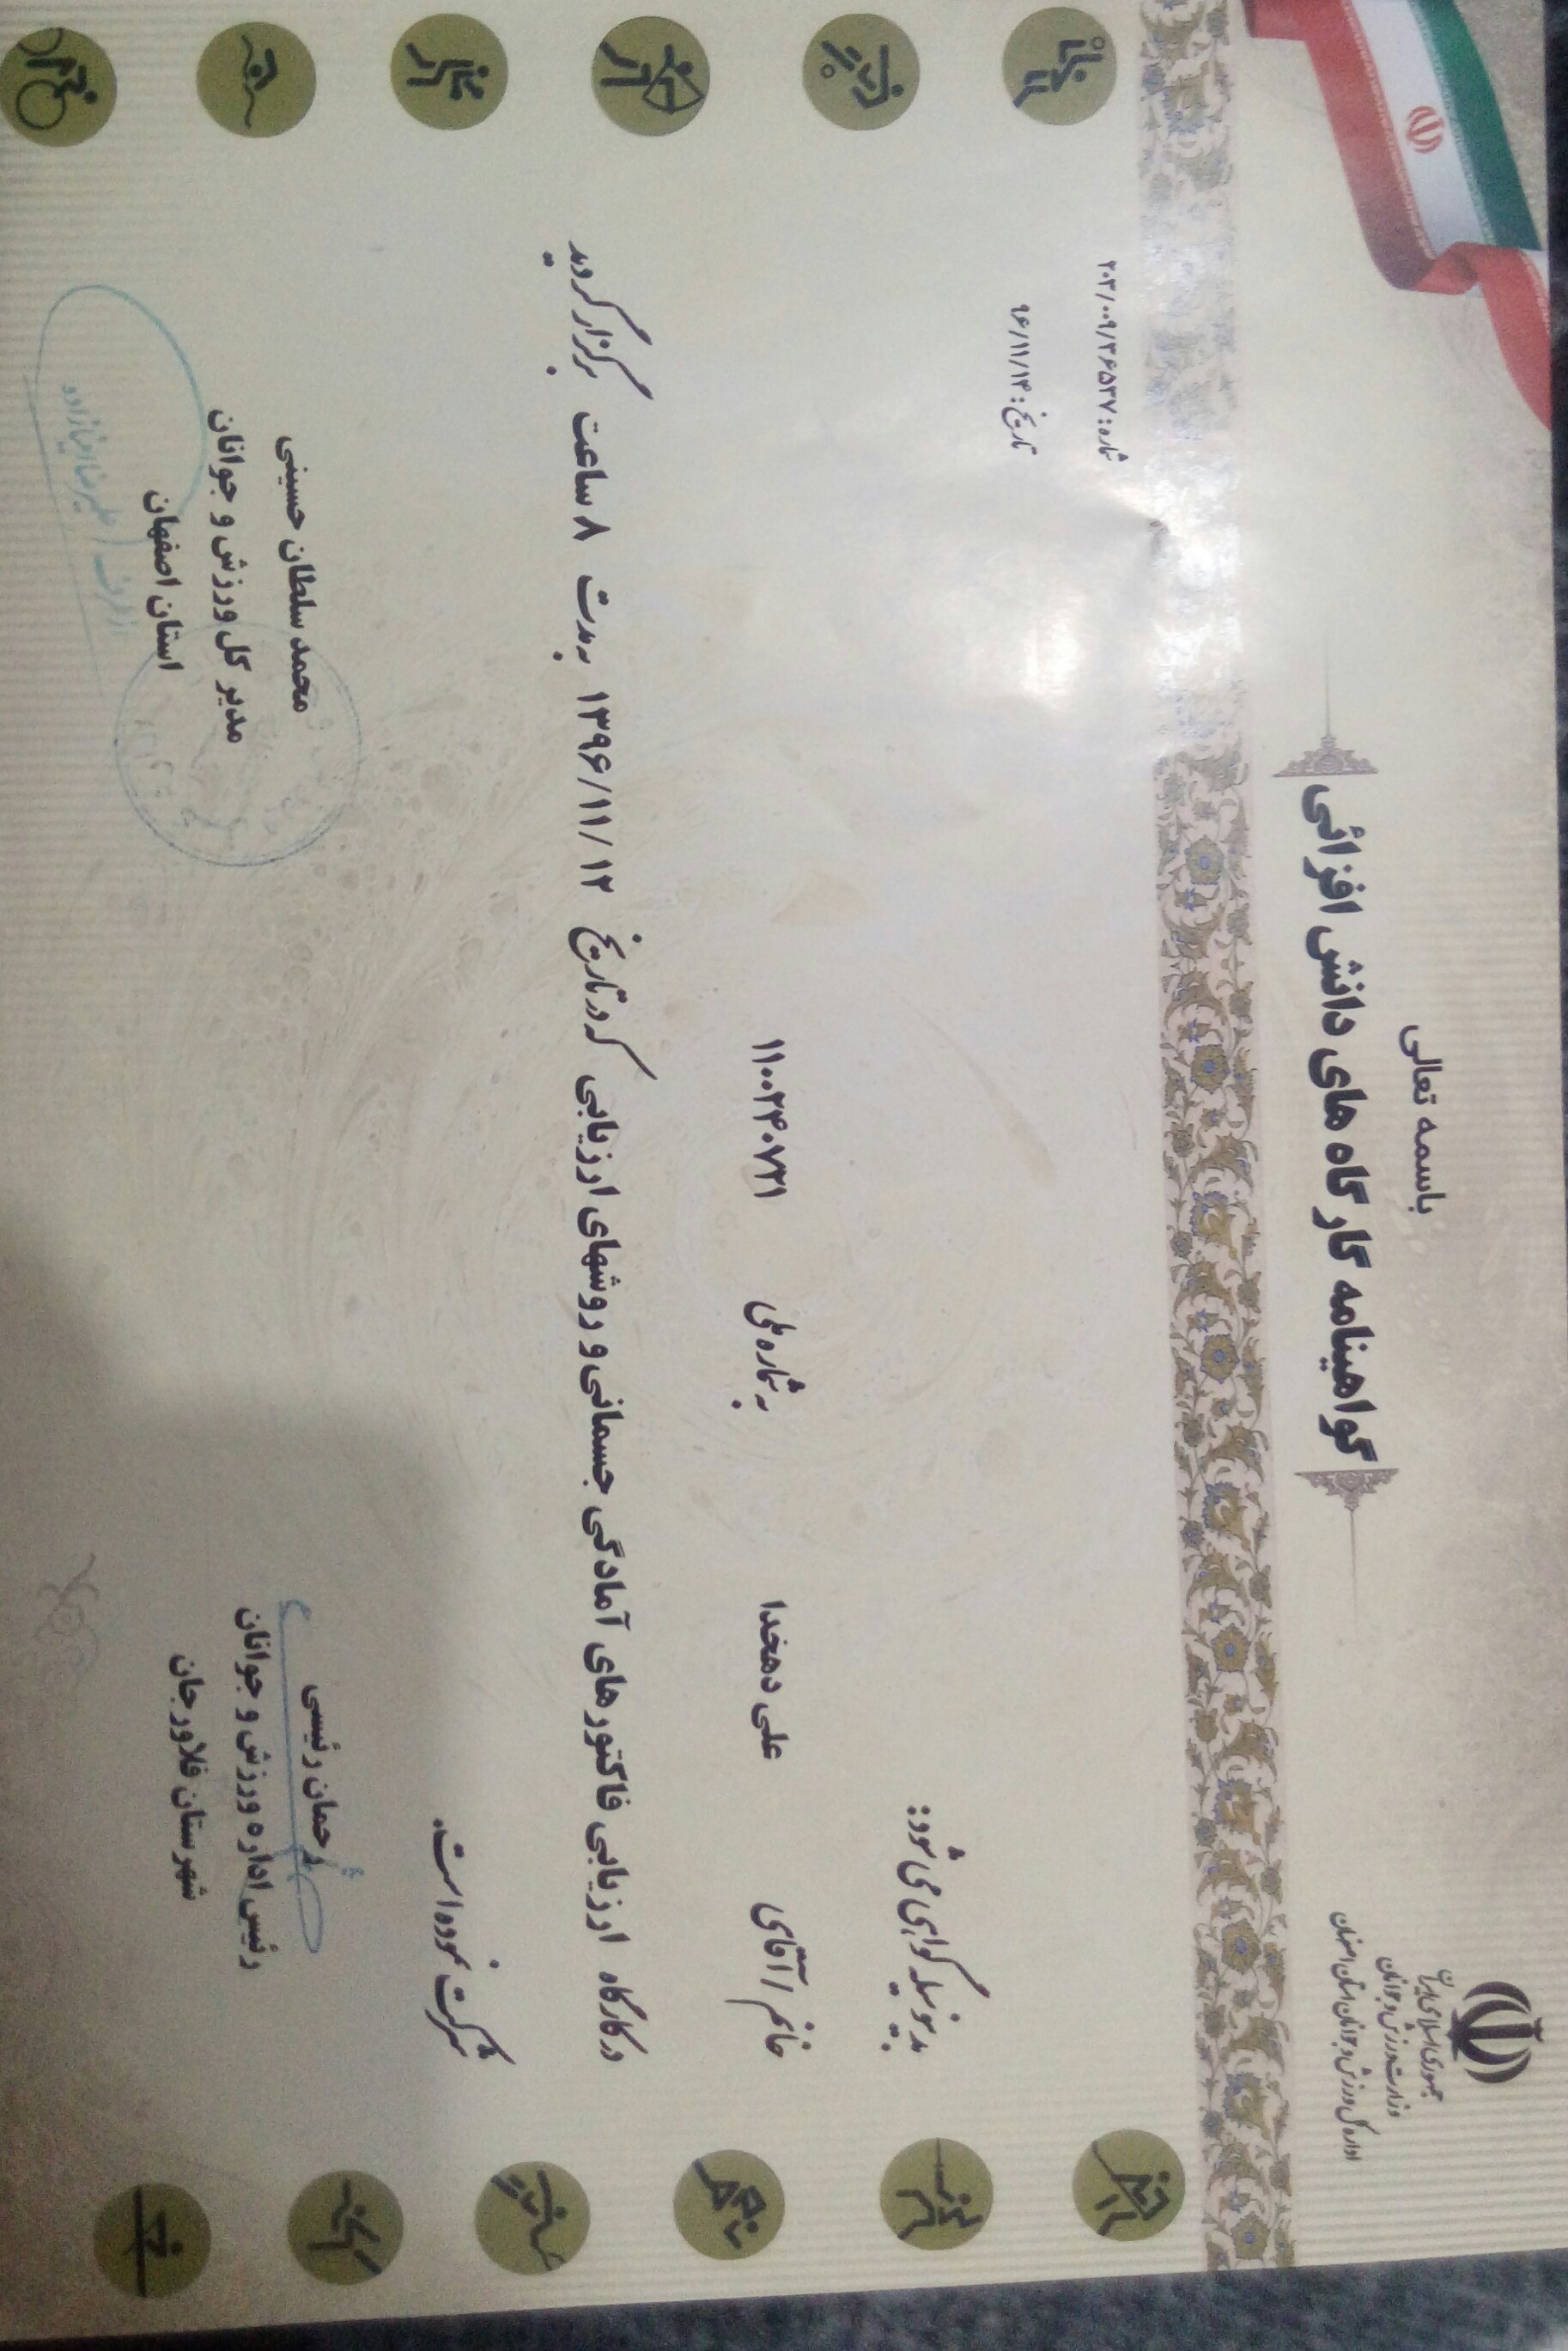 باسمه تعالی
گواهینامه کارگاه های دانش افزائی
جمهوری اسلامی ایران
وزارت ورزش و جوانان
اداره کل ورزش و جوانان استان اصفهان
شماره: ۲۰۲/۰۰۹/۳۶۵۳۷
تاریخ: ۹۶/۱۱/۱۴
بدینوسیله گواهی می شود:
خانم / آقای علی دهخدا به شماره ملی ۱۱۰۰۲۴۰۷۳۱
در کارگاه ارزیابی فاکتورهای آمادگی جسمانی و روشهای ارزیابی که در تاریخ ۱۳۹۶/۱۱/۱۲ به مدت ۸ ساعت برگزار گردید
شرکت نموده است.
رحمان رئیسی
رئیس اداره ورزش و جوانان
شهرستان فلاورجان
محمد سلطان حسینی
مدیر کل ورزش و جوانان
استان اصفهان
از طرف